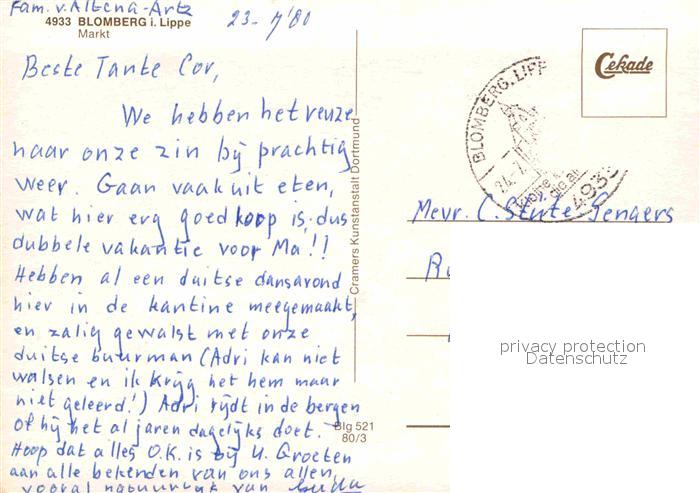 Fam. v. Altena-Artz
4933 BLOMBERG i. Lippe
Markt
23-7'80
Beste Tante Cor,
We hebben het reuze
naar onze zin bij prachtig
weer. Gaan vaak uit eten,
wat hier erg goedkoop is, dus
dubbele vakantie voor Ma!!
Hebben al een duitse dansavond
hier in de kantine meegemaakt,
en zalig gewalst met onze
duitse buurman (Adri kan niet
walsen en ik krijg het hem maar
niet geleerd!) Adri rijdt in de bergen
of hij het al jaren dagelijks doet.
Hoop dat alles O.K. is bij U. Groeten
aan alle bekenden van ons allen,
vooral natuurlijk van
Cramers Kunstanstalt Dortmund
Blg 521
80/3
Cekade
BLOMBERG, LIPP
24.7.
4933
Mevr. C.
privacy protection
Datenschutz